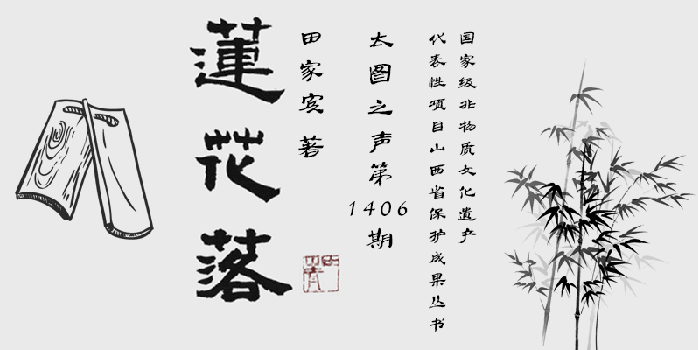 国家级非物质文化遗产
代表性项目山西省保护成果丛书
太图之声第1406期
田家宾著
蓮花落